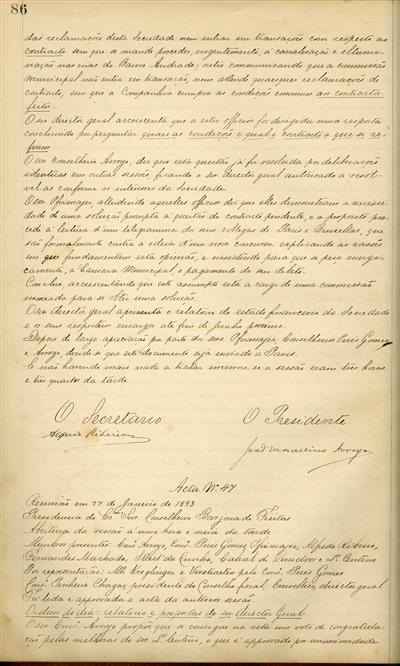 86
das reclamações desta Sociedade nem entrar em transações com respeito ao
contracto sem que se mande proceder, urgentemente, á canalisação e illumi-
nação nas ruas do Barão Andrade; outro communicando que a commissão
Municipal não entra em transação, nem attende quaesquer reclamações de
contracto, sem que a Companhia cumpra as condições communs ao contracto
feito.
O snr director geral accrescenta que a estes officios foi dirigida uma resposta
concluindo por perguntar quaes as condições e qual o contracto a que se re-
ferem
O snr Conselheiro Arroyo, diz que esta questão já foi resolvida por deliberações
identicas em outras sessões, ficando o snr director geral auctorisado a resol-
vel-as conforme os interesses da Sociedade
O snr Pfismajer, alludindo aquelles officios diz que elles demonstram a necessi-
dade de uma solução prompta á questão do contracto pendente, e a proposito pro-
cede á leitura d'um telegramma dos seus collegas de Paris e Bruxellas, que
são formalmente contra a ideia d'um novo concurso, explicando as rasões
em que fundamentam esta opinião, e insistindo para que se peça energi-
camente, á Camara Municipal, o pagamento do seu debito.
Conclue, accrescentando que este assumpto está a cargo de uma commissão
nomeada para se obter uma solução.
O snr director geral apresenta o relatorio do estado financeiro da Sociedade
e os seus respectivos encargos até fins de junho proximo.
Depois de larga apreciação por parte dos snrs Pfismajer, Conselheiros Pires Gomes
e Arroyo decide-se que este documento seja enviado a Paris.
E não havendo mais nada a tratar encerrou-se a sessão eram tres horas
e tres quartos da tarde
O Secretario O Presidente
Alfredo Ribeiro
João Marcelino Arroyo
Acta Nº 47
Reunião em 27 de Janeiro de 1893
Presidencia do Exmo Snr Conselheiro Barjona de Freitas
Abertura da sessão á uma hora e meia da tarde
Membros presentes: Cons. Arroyo, Cons. Pires Gomes, Pfismajer, Alfredo Ribeiro,
Fernandes Machado, Albert da Cunha, Cabral de Quadros e L. Centeno
Em representação: Mr. e pelo Cons. Pires Gomes
Cons. Pinheiro Chagas, presidente do Conselho fiscal, director geral
Foi lida e approvada a acta da anterior sessão
Ordem do dia: relatorio e propostas do snr director Geral
O snr Cons. Arroyo propõe que se consigne na acta um voto de congratula-
ção pelas melhoras do snr L. Centeno, o que é approvado por unanimidade